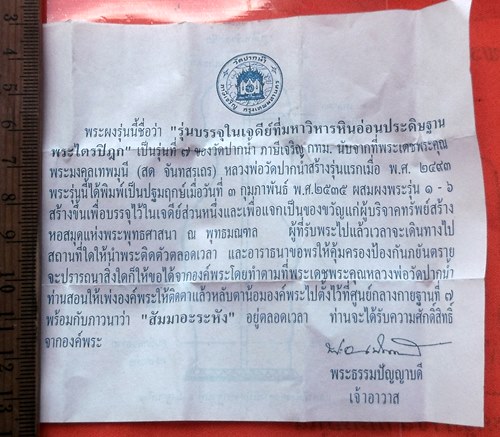 วัดปากน้ำ
ภาษีเจริญ กรุงเทพมหานคร
พระผงรุ่นนี้ชื่อว่า "รุ่นบรรจุในเจดีย์ที่มหาวิหารหินอ่อนประดิษฐาน
พระไตรปิฎก" เป็นรุ่นที่ ๗ ของวัดปากน้ำ ภาษีเจริญ กทม. นับจากที่พระเดชพระคุณ
พระมงคลเทพมุนี (สด จันทสระเถร) หลวงพ่อวัดปากน้ำสร้างรุ่นแรกเมื่อ พ.ศ. ๒๔๙๓
พระรุ่นนี้ได้พิมพ์เป็นปฐมฤกษ์เมื่อวันที่ ๓ กุมภาพันธ์ พ.ศ.๒๕๓๕ ผสมผงพระรุ่น ๑ - ๖
สร้างขึ้นเพื่อบรรจุไว้ในเจดีย์ส่วนหนึ่งและเพื่อแจกเป็นของขวัญแก่ผู้บริจาคทรัพย์สร้าง
หอสมุดแห่งพระพุทธศาสนา ณ พุทธมณฑล ผู้ที่รับพระไปแล้วเวลาจะเดินทางไป
สถานที่ใดให้นำพระติดตัวตลอดเวลา และอาราธนาขอพรให้คุ้มครองป้องกันภยันตราย
จะปรารถนาสิ่งใดก็ให้ขอได้จากองค์พระโดยทำตามที่พระเดชพระคุณหลวงพ่อวัดปากน้ำ
ท่านสอนให้เพ่งองค์พระให้ติดตาแล้วหลับตาน้อมองค์พระไปตั้งไว้ที่ศูนย์กลางกายฐานที่ ๗
พร้อมกับภาวนาว่า "สัมมาอะระหัง" อยู่ตลอดเวลา ท่านจะได้รับความศักดิ์สิทธิ์
จากองค์พระ
พระธรรมปัญญาบดี
เจ้าอาวาส
3 4 5 6 7 8 9 10 11 12 13